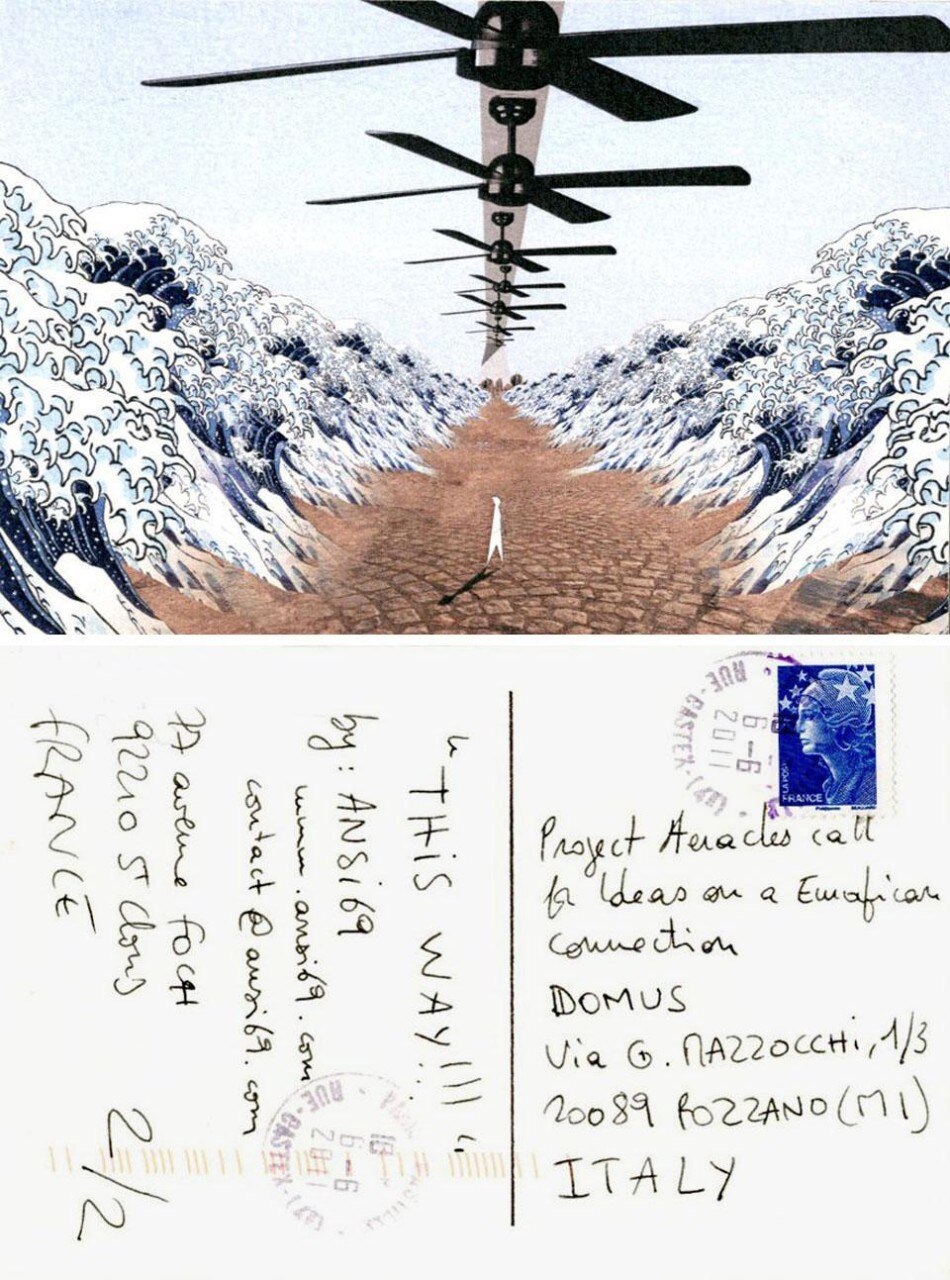 RUE-CASTEX
6-6
2011
LA POSTE
FRANCE
Project Heracles call
for Ideas on a Eurafrican
connection
DOMUS
Via G. MAZZOCCHi, 1/3
20089 ROZZANO (MI)
ITALY
"THiS WAY!!!"
by: ANSi69
www.ansi69.com
contact@ansi69.com
avenue FOCH
92210 ST Cloud
FRANCE
2/2
RUE-CASTEX
6-6
2011